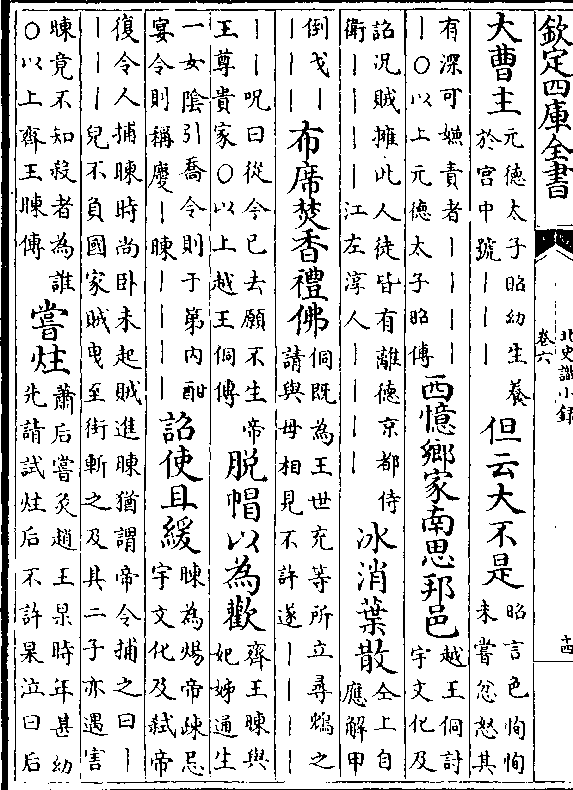 欽定四庫全書
北史識小錄
卷六
十四
大曹主
元德太子昭幼生養
於宫中號丨丨丨
但云大不是
昭言色恂恂
未嘗忿怒其
有深可嫌責者丨丨丨丨
丨〇以上元德太子昭傳
西憶鄉家南思邦邑
越王侗討
宇文化及
詔況賊擁此人徒皆有離德京都侍
衛丨丨丨丨江左淳人丨丨丨丨
冰消葉散
仝上自
應解甲
倒戈丨
丨丨丨
布席焚香禮佛
侗既為王世充等所立尋鴆之
請與母相見不許遂丨丨丨丨
丨丨呪曰從今已去願不生帝
王尊貴家〇以上越王侗傳
脱帽以為歡
齊王暕與
妃姊通生
一女陰引喬令則于第内酣
宴令則稱慶丨暕丨丨丨丨
詔使且緩
暕為煬帝疎忌
宇文化及弒帝
復令人捕暕時尚卧未起賊進暕猶謂帝令捕之曰丨
丨丨丨兒不負國家賊曳至街斬之及其二子亦遇害
暕竟不知殺者為誰
〇以上齊王暕傳
嘗炷
蕭后嘗灸趙王杲時年甚幼
先請試炷后不許杲泣曰后